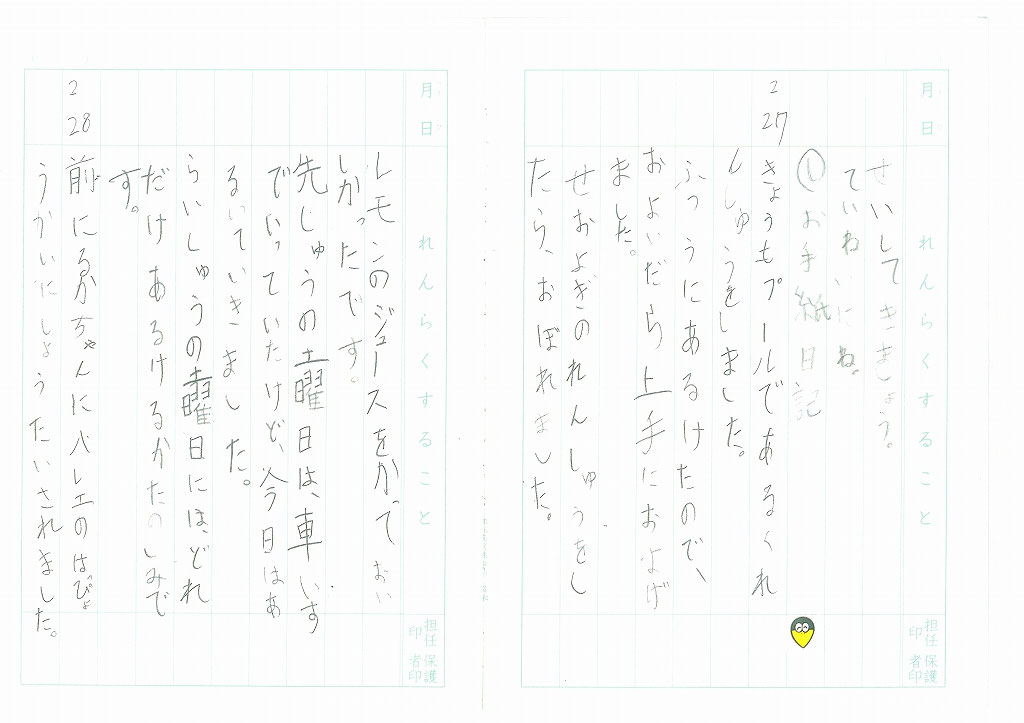 月 日
れんらくすること
せいしてきましょう。
ていねいにね。
2 27
㋹お手紙日記
きょうもプールであるくれ
んしゅうをしました。
ふつうにあるけたので、
およいだら上手におよげ
ました。
せおよぎのれんしゅうをし
たら、おぼれました。
担任印
保護者印
月 日
れんらくすること
レモンのジュースをかって おい
しかったです。
先じゅうの土曜日は、車いす
でいっていたけど、今日はあ
るいていきました。
らいしゅうの土曜日には、どれ
だけあるけるかたのしみで
す。
2 28
前にるかちゃんにバレエのはぴょ
うかいにしょうたいされました。
担任印
保護者印